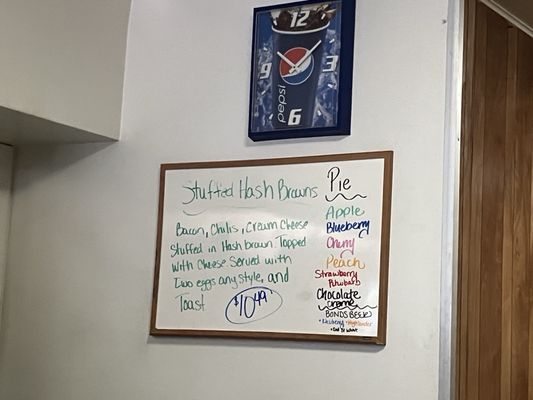 12
9
3
6
pepsi
Stuffed Hash Browns
Bacon, Chilis, Cream Cheese
Stuffed in Hash brown. Topped
With Cheese Served with
Two eggs any style, and
Toast
$10.49
Pie
Apple
Blueberry
Cherry
Peach
Strawberry
Rhubarb
Chocolate
creme
BONDS BEER